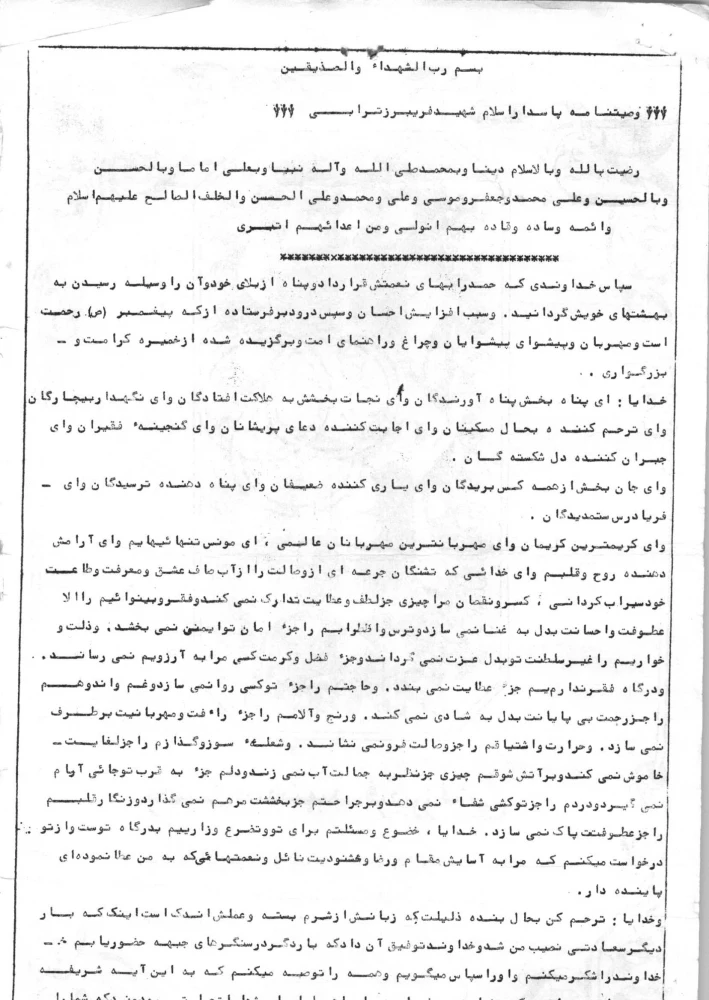 بسم رب الشهداء والصدیقین
وصیتنامه پاسدار اسلام شهید فریبرز ترابی
رضیت بالله وبالاسلام دینا وبمحمدصلی الله وآله نبیا وبعلی اماما وبالحسن
وبالحسین وعلی محمدوجعفروموسی وعلی ومحمدوعلی الحسن والخلف الصالح علیهم اسلام
وائمه وساده وقاده بهم اتولی ومن اعدائهم اتبری
سپاس خداوندی که حمدرا بهای نعمتش قرار دادوپناه ازبلای خودوآن را وسیله رسیدن به
بهشتهای خویش گردانید. وسبب افزایش احسان وسپس درودبرفرستاده ازکه پیغمبر (ص) رحمت
است ومهربان وپیشوای پیشوایان وچراغ وراهنمای امت وبرگزیده شده ازخمیره کرامت و -
بزرگواری .
خدایا: ای پناه بخش پناه آورندگان وای نجات بخشش به هلاکت افتادگان وای نگهدار بیچارگان
وای ترحم کننده بحال مسکینان وای اجابت کننده دعای پریشانان وای گنجینه فقیران وای
جبران کننده دل شکسته گان .
وای جان بخش ازهمه کس بریدگان وای یاری کننده ضعیفان وای پناه دهنده ترسیدگان وای -
فریادرس ستمدیدگان .
وای کریمترین کریمان وای مهربانترین مهربانان عالیمی ، ای مونس تنهائیهایم وای آرامش
دهنده روح وقلبم وای خدائی که تشنگان جرعه ای ازوصالت را ازآب صاف عشق ومعرفت وطاعت
خودسیراب کردانی ، کسرونقصان مرا چیزی جزلطف وعطایت تدارک نمی کندوفقروبینوائیم را الا
عطوفت واحسانت بدل به غنا نمی سازدوترس واضطرابم را جزء امان توایمنی نمی بخشد. وذلت و
خواریم را غیرسلطنت توبدل عزت نمی گرداندوجزء فضل وکرمت کسی مرا به آرزویم نمی رساند.
ودرگاه فقرندارم یم جزء عطایت نمی بندد. وحاجتم را جزء توکسی روا نمی سازدوغم واندوهم
را جزرحمت بی پایانت بدل به شادی نمی کند. ورنج وآلامم را جزء راءفت ومهربانیت برطرف
نمی سازد. وحرارت واشتیاقم را جزوصالت فرونمی نشاند. وشعله سوزوگدازم را جزلقایت -
خاموش نمی کندوبرآتش شوقم چیزی جزنظربه جمالت آب نمی زندودلم جزء به قرب توجائی آرام
نمی گیردودردم را جزتوکسی شفاء نمی دهدوبرجراحتم جزبخششت مرهم نمی گذاردوزنگارقلبم
را جزعطوفتت پاک نمی سازد. خدایا ، خضوع ومسئلتم برای تووتضرع وزاریم بدرگاه توست وازتو
درخواست میکنم که مرا به آسایش مقام ورضا وخشنودیت نائل ونعمتهائی که به من عطا نموده ای
پاینده دار.
وخدایا : ترحم کن بحال بنده ذلیلت که زبانش ازشرم بسته وعملش اندک است اینک که بار
دیگرسعادتی نصیب من شدوخداوندتوفیق آن دادکه باردگردرسنگرهای جبهه حضوریابم -
خداوندرا شکرمیکنم واورا سپاس میگویم وهمه را توصیه میکنم که به این آیه شریفه